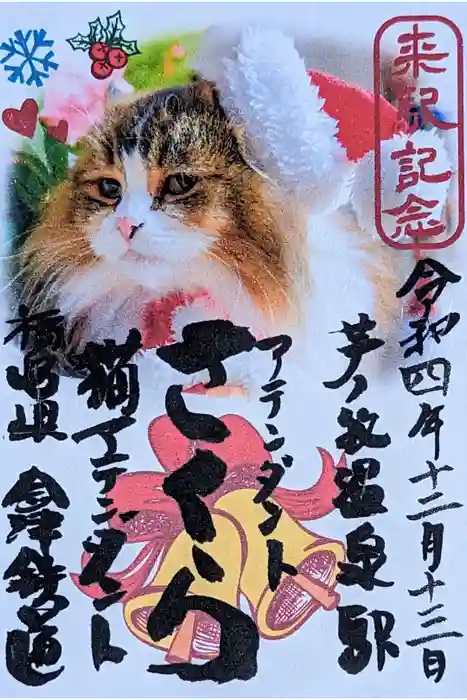 来駅記念
令和四年十二月十三日
芦ノ牧温泉駅
アテンダント
さくら
猫アテンダント
福島県 會津鉄道